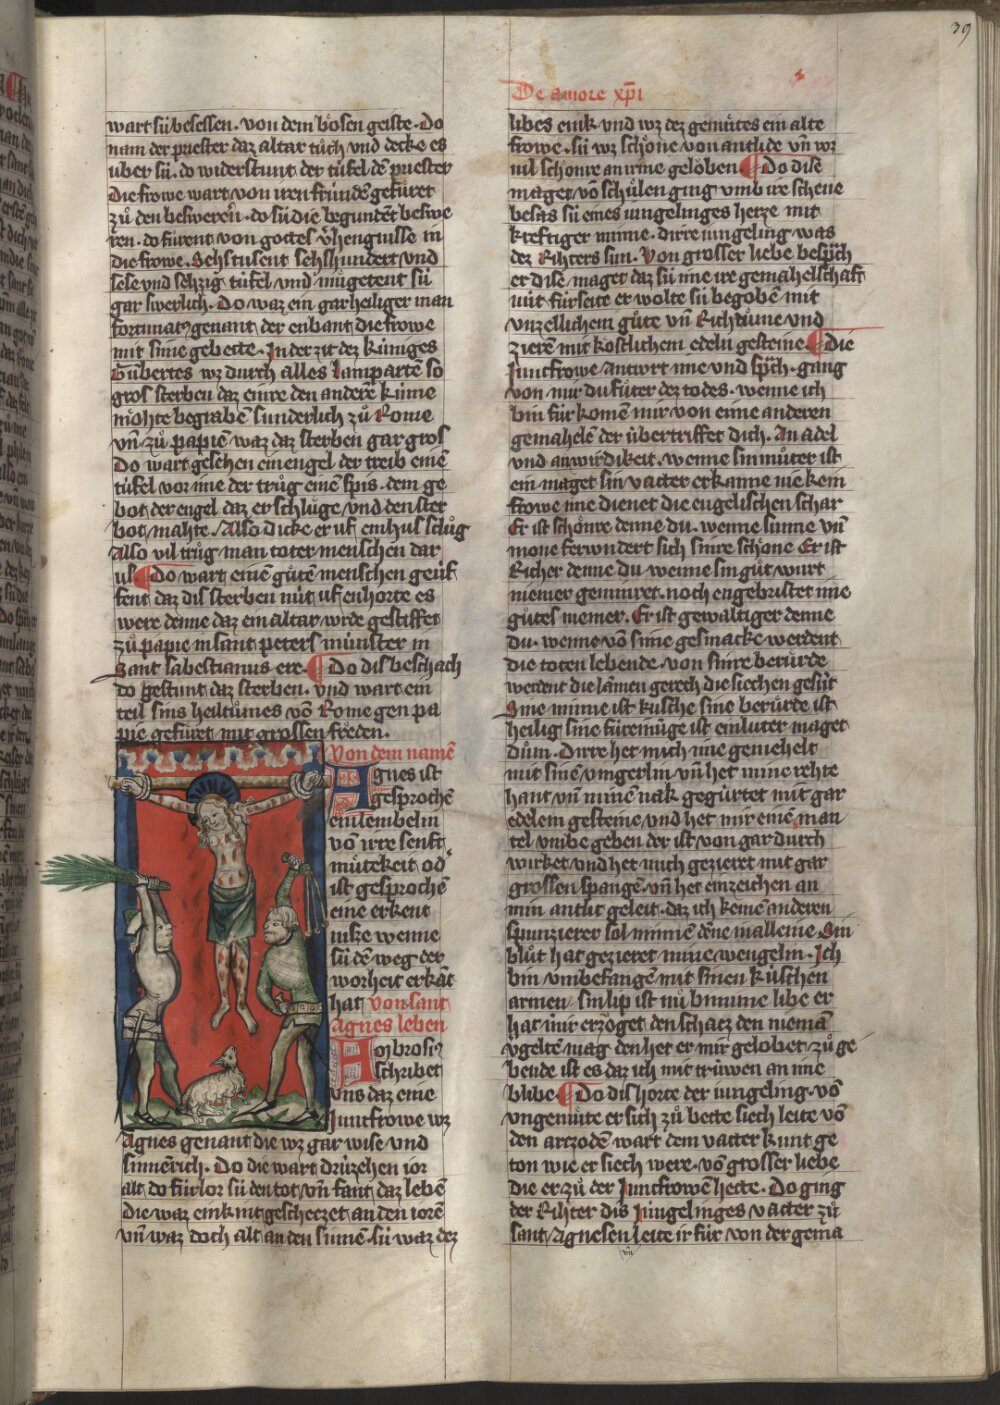 39
wart sú besessen. von dem bósen geiste. Do
nam der priester daz altar tůch vnd decke es
uber sú. do widerstunt der túfel dē priester
Die frowe wart von iren frúndē gefůret
zů den besweren. do sú die begundēt beswe
ren. do fůrent von gottes v̄hengnisse in
die frowe. Sehstusent sehshundert vnd
sese vnd sehzig túfel vnd můgetent sú
gar swerlich. Do waz ein gar heiliger man
fortunatꝰ genant der enbant die frowe
mit sime gebette. In der zit dez kúniges
Gūbertes wz durch alles lamparten so
gros sterben daz einre den anderē kume
móhte begrabē sunderlich zů Rome
vn̄ zů papie waz daz sterben gar gros
Do wart gesehen ein engel der treib einē
túfel vor ime der trůg einē spis. dem ge
bot der engel daz er schlůge vnd den ster
bot mahte. Also dicke er uf ein hus schůg
Also vil trůg man toter menschen dar
us ¶ Do wart eime gůten menschen geof
fent daz dis sterben nút uf enhorte es
were denne daz ein altar wrde gestiftet
zů papie in sant peters múnster in
Sant sabestianus ere. ¶ Do dis beschach
do gestunt daz sterben. vnd wart ein
teil sins heiltůmes vō Rome gen pa
pie gefůret mit grossen frôden.
Von dem namē
Agnes ist
gesprochē
ein lembelin
vō irre senft
můtekeit od
ist gesprochē
eine erkent
nisze wenne
sú den weg der
worheit erkāt
hat von sant
agnes leben
Ambrosiꝰ
schribet
vns daz eine
Juncfrowe wz
Agnes genant die wz gar wise vnd
sinnērich. Do die wart drúzehen ior
alt do fúrlor sú den tot vn̄ fant daz leben
die waz ein kint geschetzet an den iorē
vn̄ waz doch alt an den sinnē. sú waz dez
De amore xp̄i
libes eink vnd wz dez gemůtes ein alte
frowe. sú wz schóne von antlide vn̄ wz
vil schónre an irme gelôben ¶ Do dise
maget vō schůlen ging vmb ire schene
besas sú eines iungelinges herze mit
kreftiger minne. dirre iungeling was
dez Rihters sun. Von grosser liebe besp̄ch
er dise maget daz sú ime ire gemahelschaft
nút fúrseite er wolte sú begobē mit
vnzellichem gůte vn̄ Richtůme vnd
zierē mit kostlichem edeln gesteine ¶ Die
Juncfrowe antwrt ime vnd sp̄ch. gang
von mir du fůter dez todes. wenne ich
bin fúr komē mir von eime anderen
gemahelē der úbertriffet dich. An adel
vnd an wirdikeit. wenne sin můter ist
ein maget sin vatter erkante nie kein
frowe ime dienet die engelischen schar
Er ist schónre denne du. wenne sunne vn̄
mone ferwndert sich sinre schóne Er ist
Richer denne du wenne sin gůt wurt
niemer geminret. noch engebristet ime
gůtes niemer. Er ist gewaltiger denne
du. wenne vō sime gesmacke werdent
die toten lebende. von sinre berůrde
werdent die lāmen gerech die siechen gesůt
Sine minne ist kúsche sine berůrde ist
heilig sine fúreinúge ist ein luter maget
dům. Dirre het mich ime gemehelt
mit sinē vingerlin vn̄ het mine rehte
hant vn̄ minē nak gegúrtet mit gar
edelem gesteine vnd het mir einē man
tel vmbe geben der ist von gar durch
wirket vnd het mich gezieret mit gar
grossen spangē. vn̄ het ein zeichen an
min antlit geleit. daz ich keinē anderen
spunzierer sol minnē dēne in alleine Sin
blůt hat gezieret mine wengelin. Ich
bin vmbefangē mit sinen kúschen
armen. sin lip ist nů bi mime libe er
hat mir erzôget den schatz den niemā
vgeltē mag den het er mir gelobet zů ge
bende ist es daz ich mit trúwen an ime
blibe ¶ Do dis horte der iungeling. vō
vngemůte er sich zů bette siech leite vō
den arczodē wart dem vatter kunt ge
ton wie er siech were. vō grosser liebe
die er zů der Juncfrowē hette. Do ging
der Rihter dis Jungelinges vatter zů
sant Agnesen leite ir fúr von der gema
vn̄